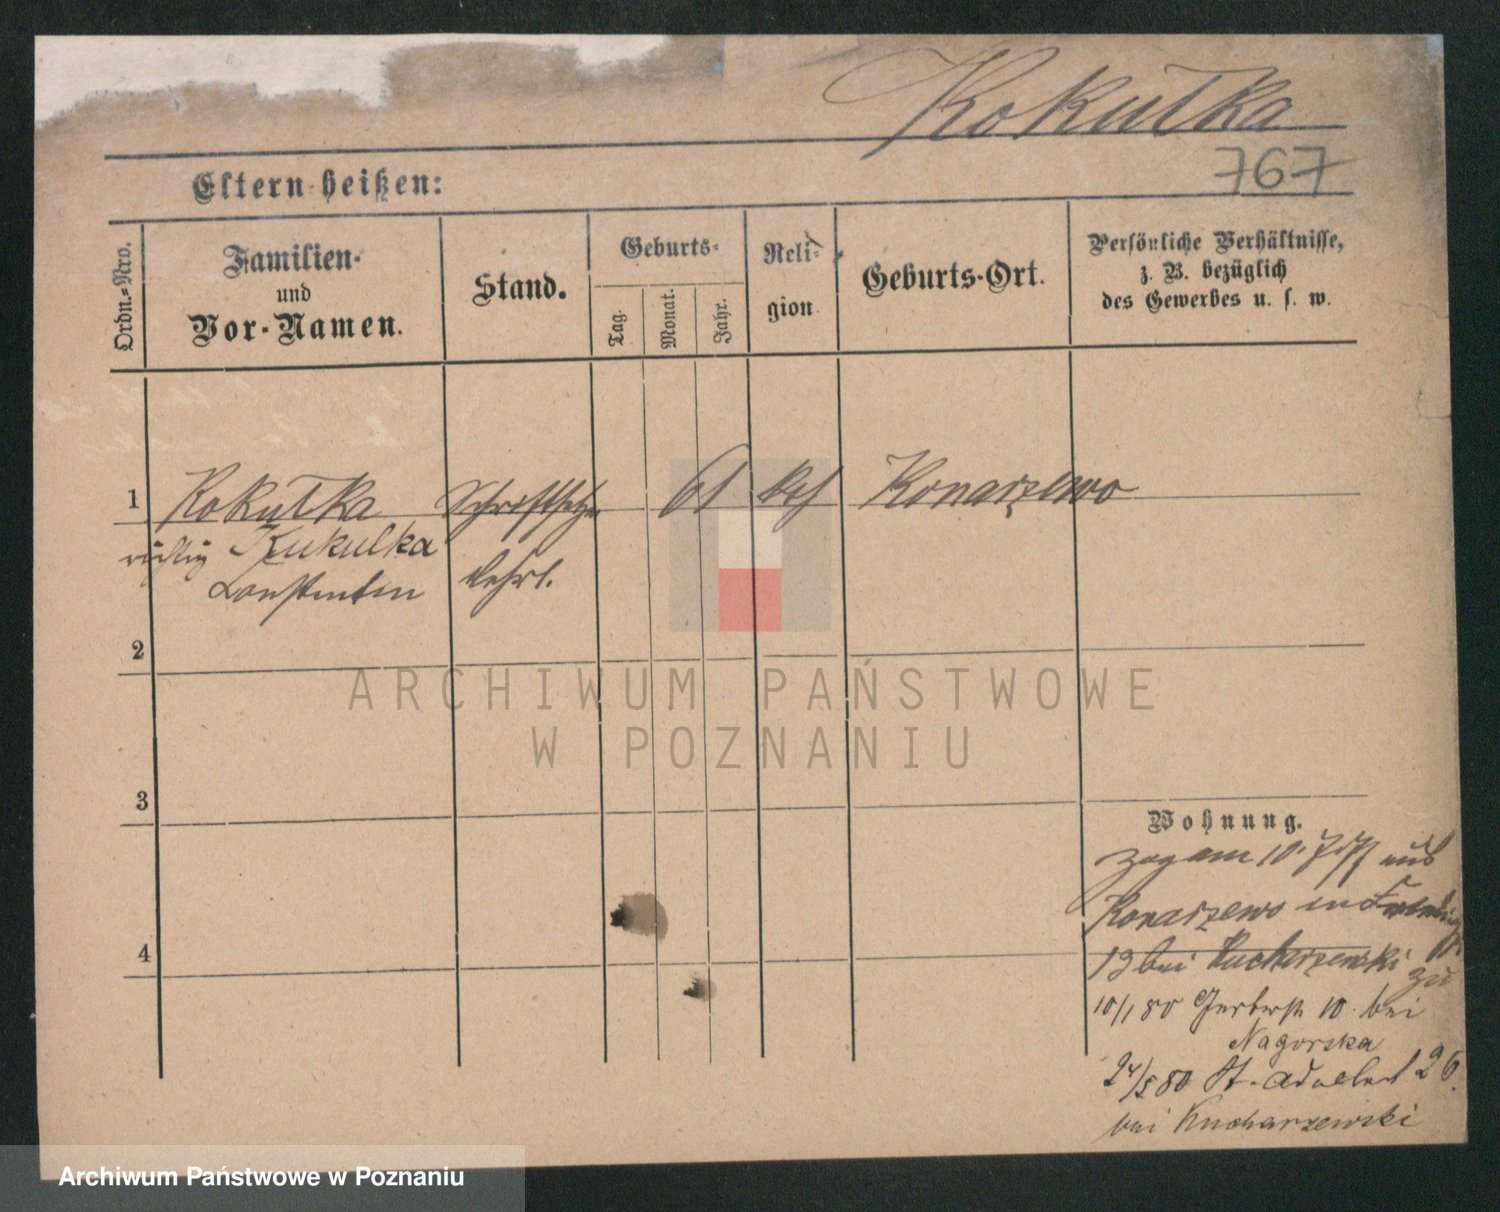 Kokułka
767
Eltern heißen:
Ordn.-Nro.
Familien-
und
Vor-Namen.
Stand.
Geburts-
Tag.
Monat.
Jahr.
Reli-
gion
Geburts-Ort.
Persönliche Verhältnisse,
z. B. bezüglich
des Gewerbes u. s. w.
1 Kokułka Schriftsetzer 61 kath Konarzewo
richtig Kukulka
Constantin Lehrl.
2
3
4
Wohnung.
zog am 10. aus
Konarzewo in
13 bei Kucharzewski zu
10/1 80 Gerberstr 10 bei
Nagorska
24/5 80 St. Adalbert 26.
bei Kucharzewski
ARCHIWUM PAŃSTWOWE
W POZNANIU
Archiwum Państwowe w Poznaniu